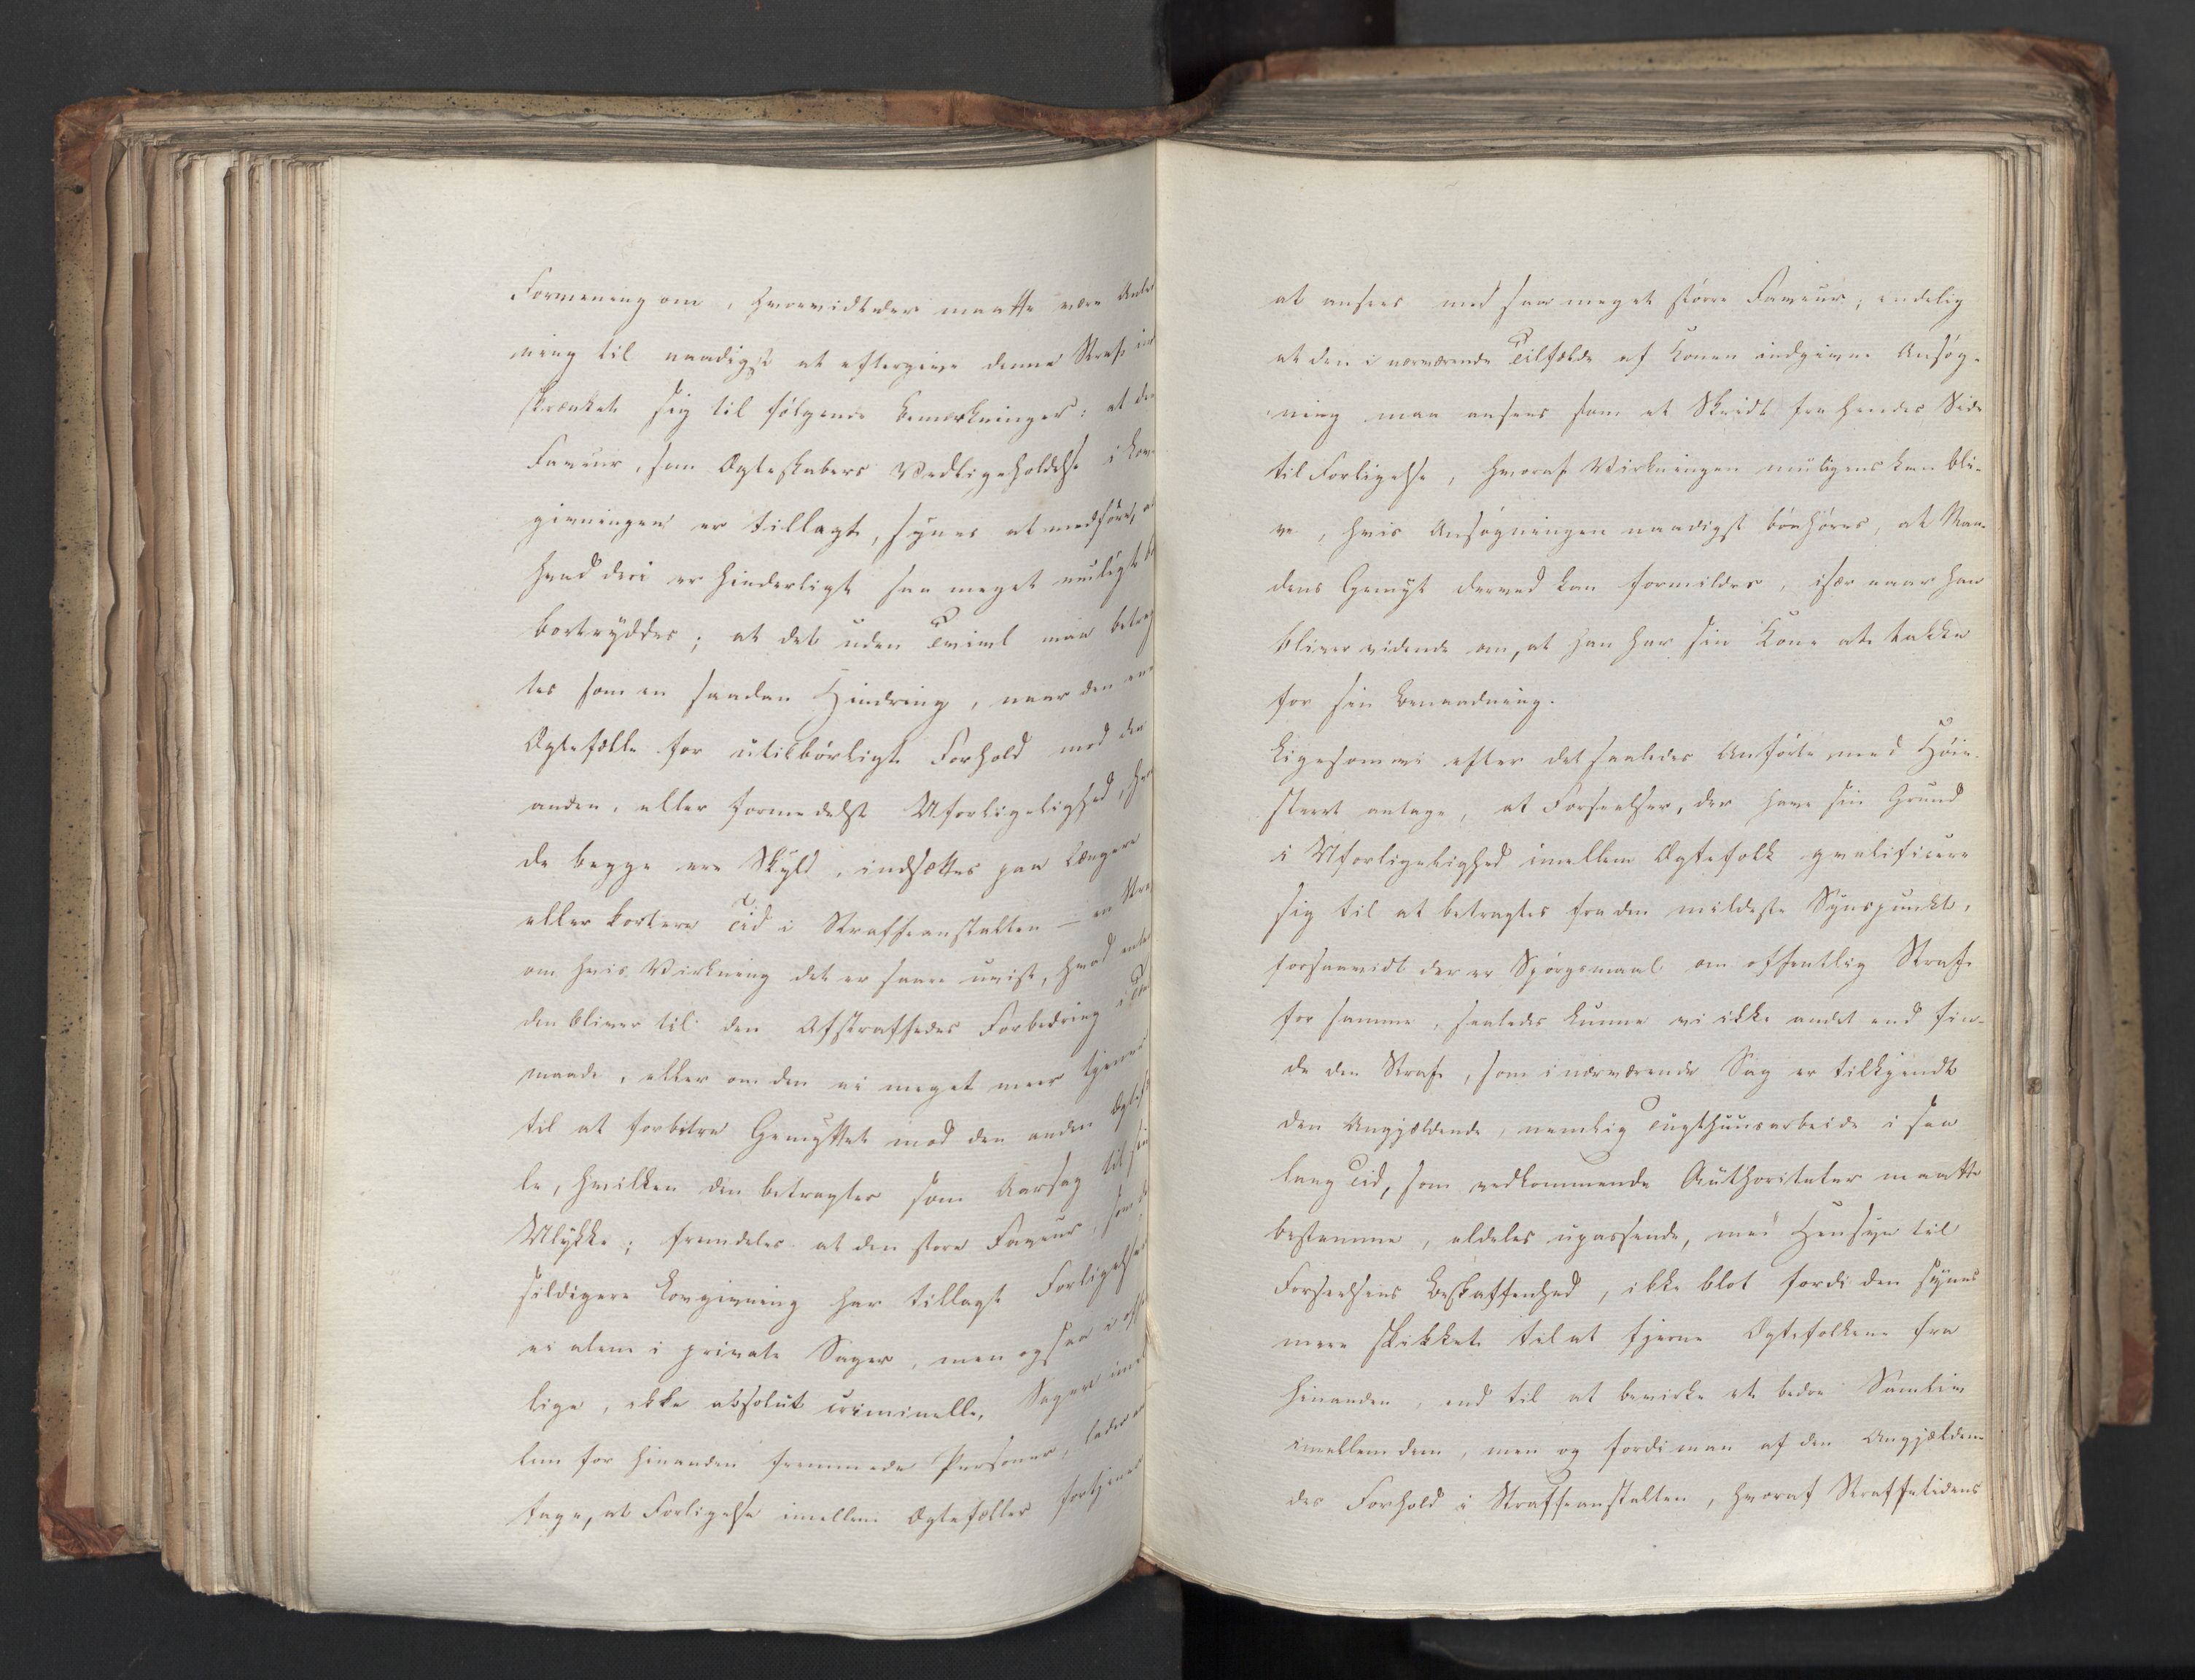 Formening om, hvorvidt der maatte være Anled
ning til naadigst at eftergive denne Straf ind
skrænket sig til følgende Bemærkninger: at den
Faveur, som Ægteskabers Vedligeholdelse i Lov-
givningen er tillagt, synes at medføre, at
hvad deri er hinderligt saa meget muligt bør
bortryddes; at det uden Tvivl maa betrag
tes som en saadan Hindring, naar den ene
Ægtefælle for utilbørligt Forhold mod den
anden, eller formedelst Uforligelighed, hvori
de begge ere Skyld, indsættes paa længere
eller kortere Tid i Straffeanstalten – en Straf
om hvis Virkning det er saare uvist, hvad enten
den bliver til den Afstraffedes Forbedring i
maade, eller om den ei meget meer tjener
til at forbitre Gemyttet mod den anden Ægtefæl
le, hvilken den betragter som Aarsag til sin
Ulykke; fremdeles at den store Faveur, som
sildigere Lovgivning har tillagt Forligelser
ei alene i private Sager, men ogsaa i offent
lige, ikke absolut criminelle, Sager imel
lem for hinanden fremmede Personer, lader an
tage, at Forligelse imellem Ægtefæller fortjener
at ansees med saa meget större Faveur; endelig
at den i nærværende Tilfælde af Konen indgivne Ansøg-
ning maa ansees som et Skridt fra hendes Side
til Forligelse, hvoraf Virkningen muligens kan bli-
ve, hvis Ansøgningen naadigst bönhöres, at Man-
dens Gemyt derved kan formildes, især naar han
bliver vidende om, at han har sin Kone at takke
for sin Benaadning.
Ligesom vi efter det saaledes Anförte med Höie-
steret antage, at Forseelser, der have sin Grund
i Uforligelighed imellem Ægtefolk qvalificere
sig til at betragtes fra den mildeste Synspunkt,
forsaavidt der er Spörgsmaal om offentlig Straf
for samme, saaledes kunne vi ikke andet end fin-
de den Straf, som i nærværende Sag er tilkjendt
den Angjældende, nemlig Tugthuusarbeide i saa
lang Tid, som vedkommende Authoriteter maatte
bestemme, aldeles upassende, med Hensyn til
Forseelsens Beskaffenhed, ikke blot fordi den synes
mere skikket til at fjerne Ægtefolkene fra
hinanden, end til at bevirke et bedre Samliv
imellem dem, men og fordi man af den Angjælden-
des Forhold i Straffeanstalten, hvoraf Straffetidens